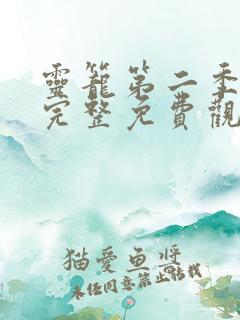 靈籠第二季
完整免費觀
猫愛魚醬
未经同意禁止转载